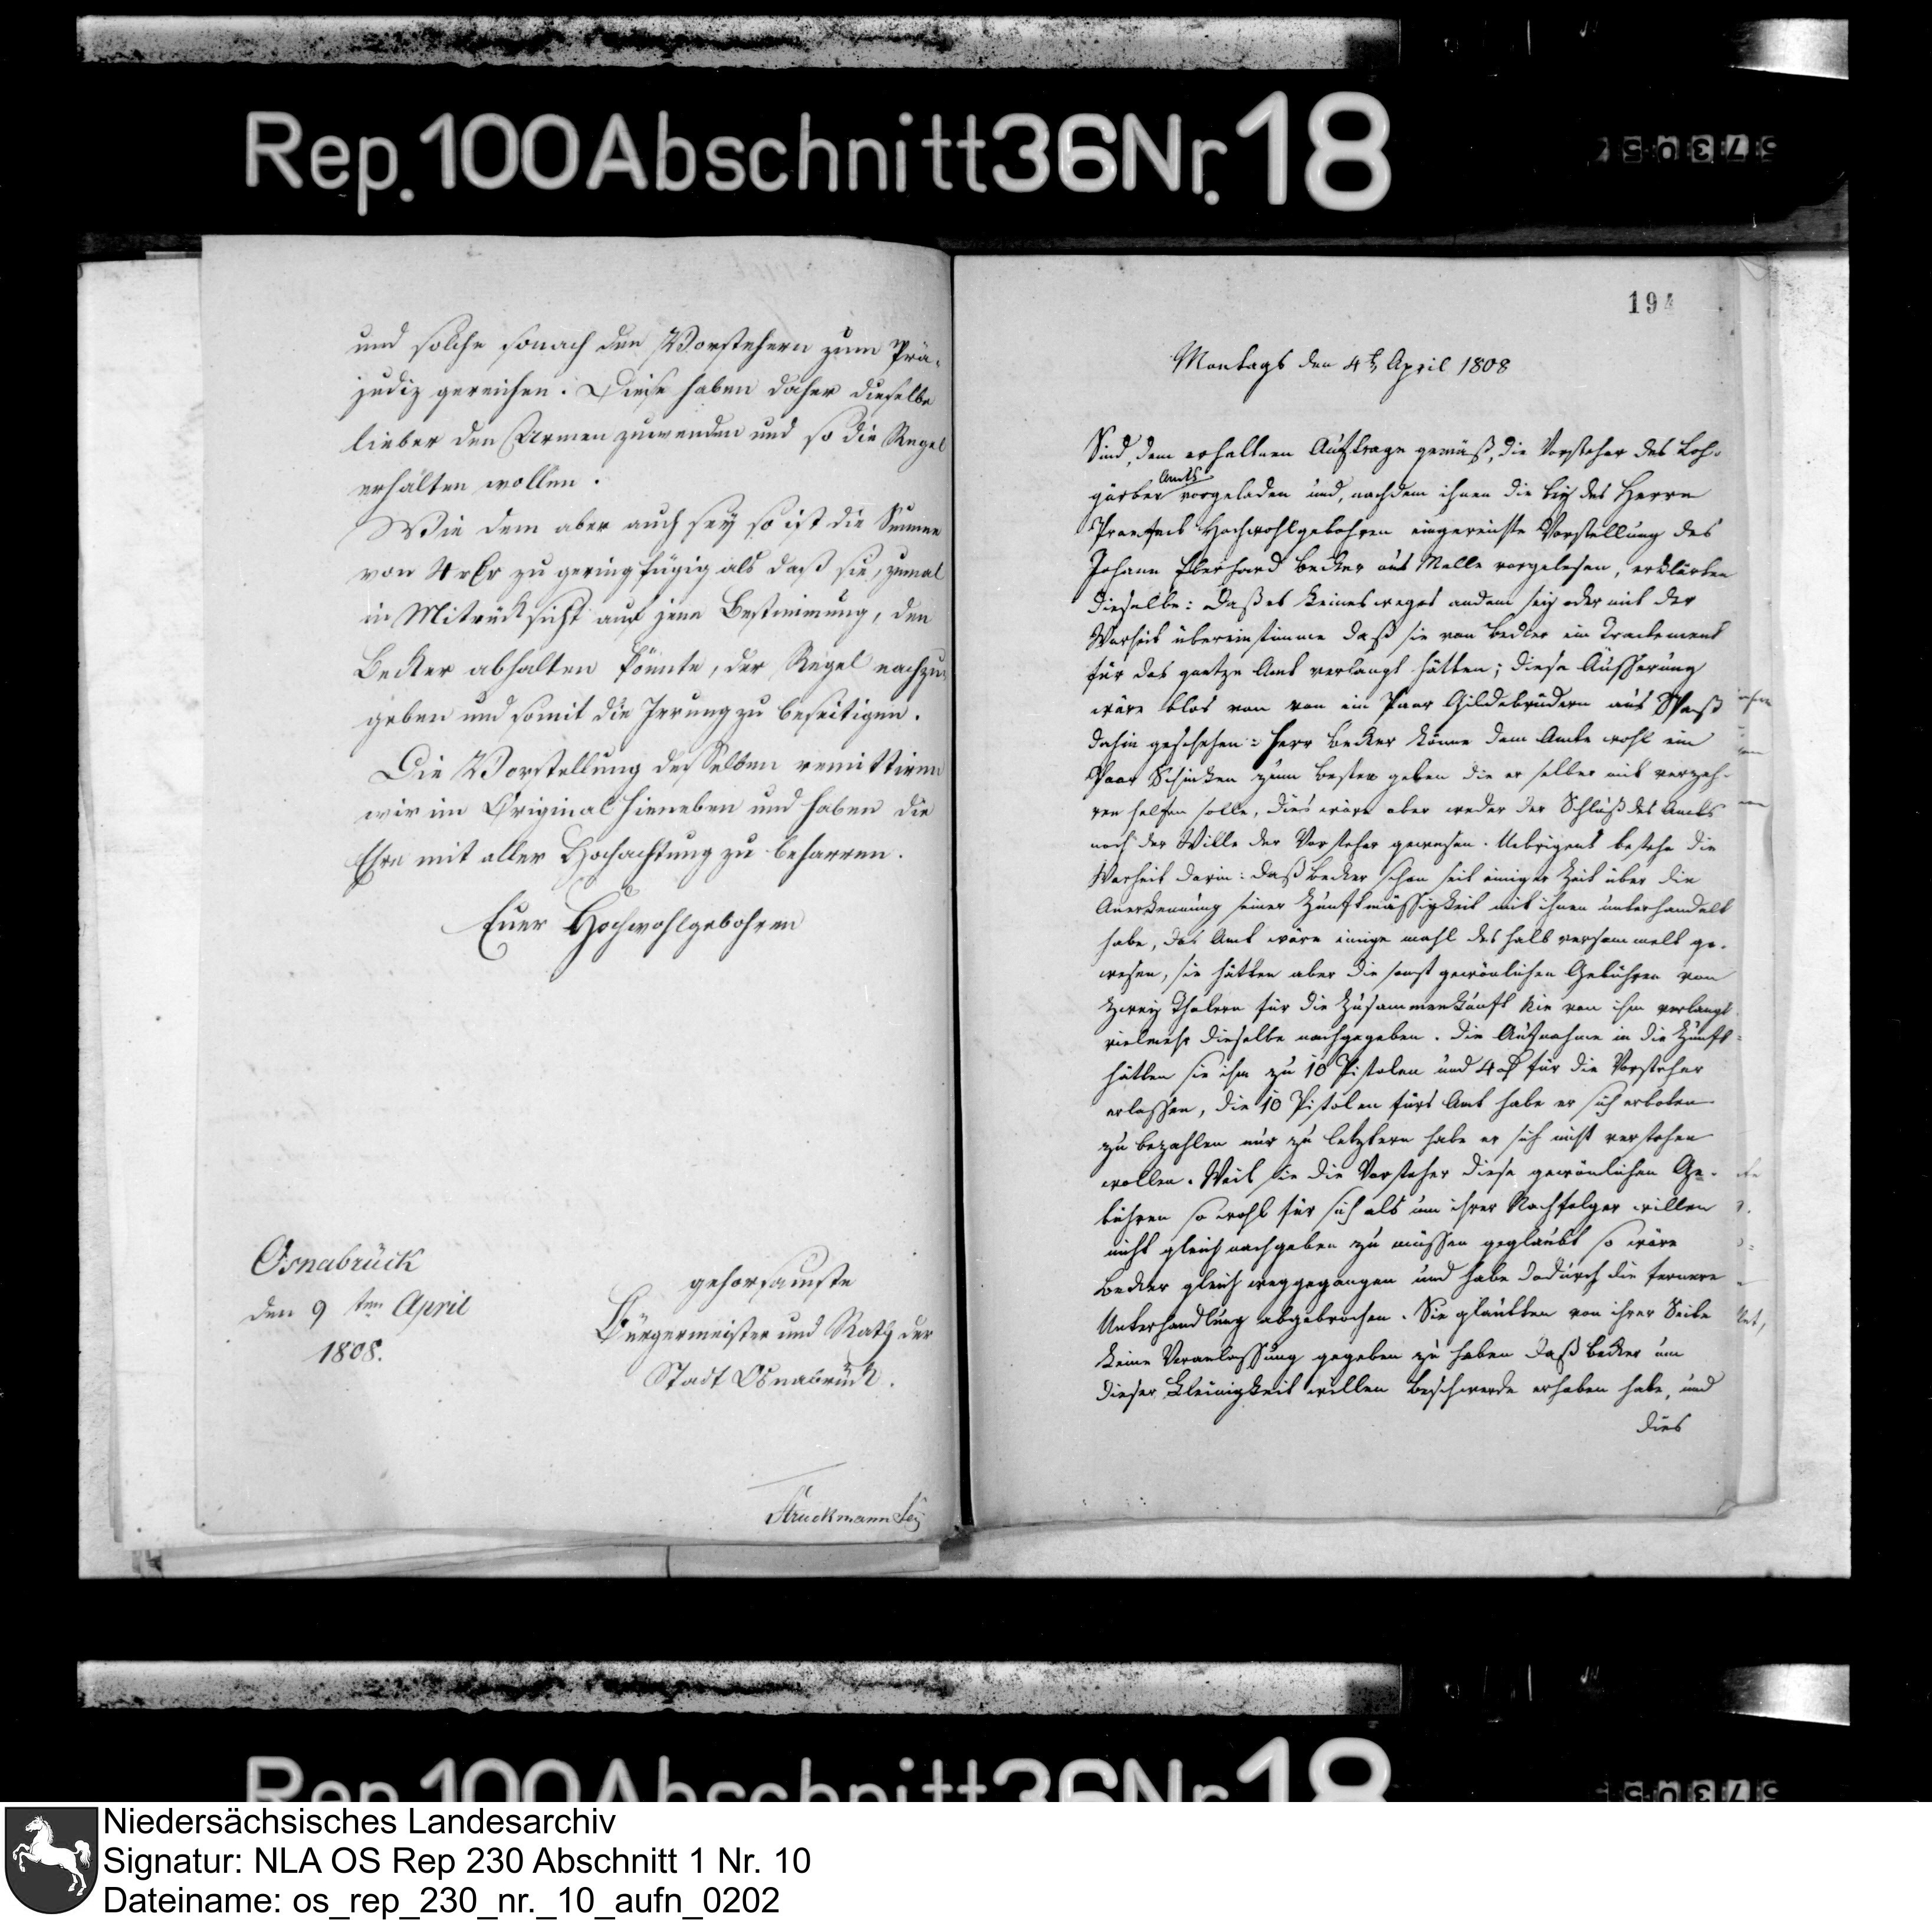 Rep. 100 Abschnitt 36 Nr. 18
und solche sonach den Vorstehern zum Prä-
judiz gereichen. Diese haben daher dieselbe
lieber den Armen zuwenden und so die Regel
erhalten wollen.
Wie dem aber auch sey so ist die Summe
von 4 rthr zu geringfügig als daß sie, zumal
in Mitrücksicht auf jene Bestimmung, den
Becker abhalten könnte, der Regel nachzu-
geben und somit die Irrung zu beseitigen.
Die Vorstellung desselben remittiren
wir im Original hieneben und haben die
Ehre mit aller Hochachtung zu beharren.
Euer Hochwohlgebohren
Osnabrück
den 9 ten April
1808.
gehorsamste
Bürgermeister und Rath der
Stadt Osnabrück.
Struckmann
194
Montags den 4t April 1808
Sind, dem erhaltnen Auftrage gemäß, die Vorsteher des Loh-
gärber Amts vorgeladen und, nachdem ihnen die bey des Herrn
Praefect Hochwohlgebohren eingereichte Vorstellung des
Johann Eberhard Becker aus Melle vorgelesen, erklärten
dieselbe: Daß es keinesweges andem sey oder mit der
Warheit übereinstimme daß sie von Becker ein Tractement
für das gantze Amt verlangt hätten; diese Äusserung
wäre blos von von ein Paar Gildebrüdern aus Spaß
dahin geschehen: Herr Becker könne dem Amte wohl ein
Paar Schinken zum Besten geben die er selber mit verzeh-
ren helfen solle, dies wäre aber weder der Schluß des Amts
noch der Wille der Vorsteher gewesen. Uebrigens bestehe die
Warheit darin: daß Becker schon seit einiger Zeit über die
Anerkennung seiner Zunftmässigkeit mit ihnen unterhandelt
habe, das Amt wäre einige mahl deshalb versammelt ge-
wesen, sie hätten aber die sonst gewönlichen Gebühren von
zwey Thalern für die Zusammenkunft nie von ihm verlangt
vielmehr dieselbe nachgegeben. Die Aufnahme in die Zunft
hätten sie ihm zu 10 Pistolen und 4 für die Vorsteher
erlassen, die 10 Pistolen fürs Amt habe er sich erboten
zu bezahlen nur zu letztern habe er sich nicht verstehen
wollen. Weil sie die Vorsteher diese gewönlichen Ge-
bühren so wohl für sich als um ihrer Nachfolger willen
nicht gleich nachgeben zu müssen geglaubt so wäre
Becker gleich weggegangen und habe dadurch die fernere
Unterhandlung abgebrochen. Sie glaubten von ihrer Seite
keine Veranlassung gegeben zu haben daß Becker um
dieser Kleinigkeit willen Beschwerde erhoben habe, und
dies
Rep. 100 Abschnitt 36 Nr. 18
Niedersächsisches Landesarchiv
Signatur: NLA OS Rep 230 Abschnitt 1 Nr. 10
Dateiname: os_rep_230_nr._10_aufn_0202